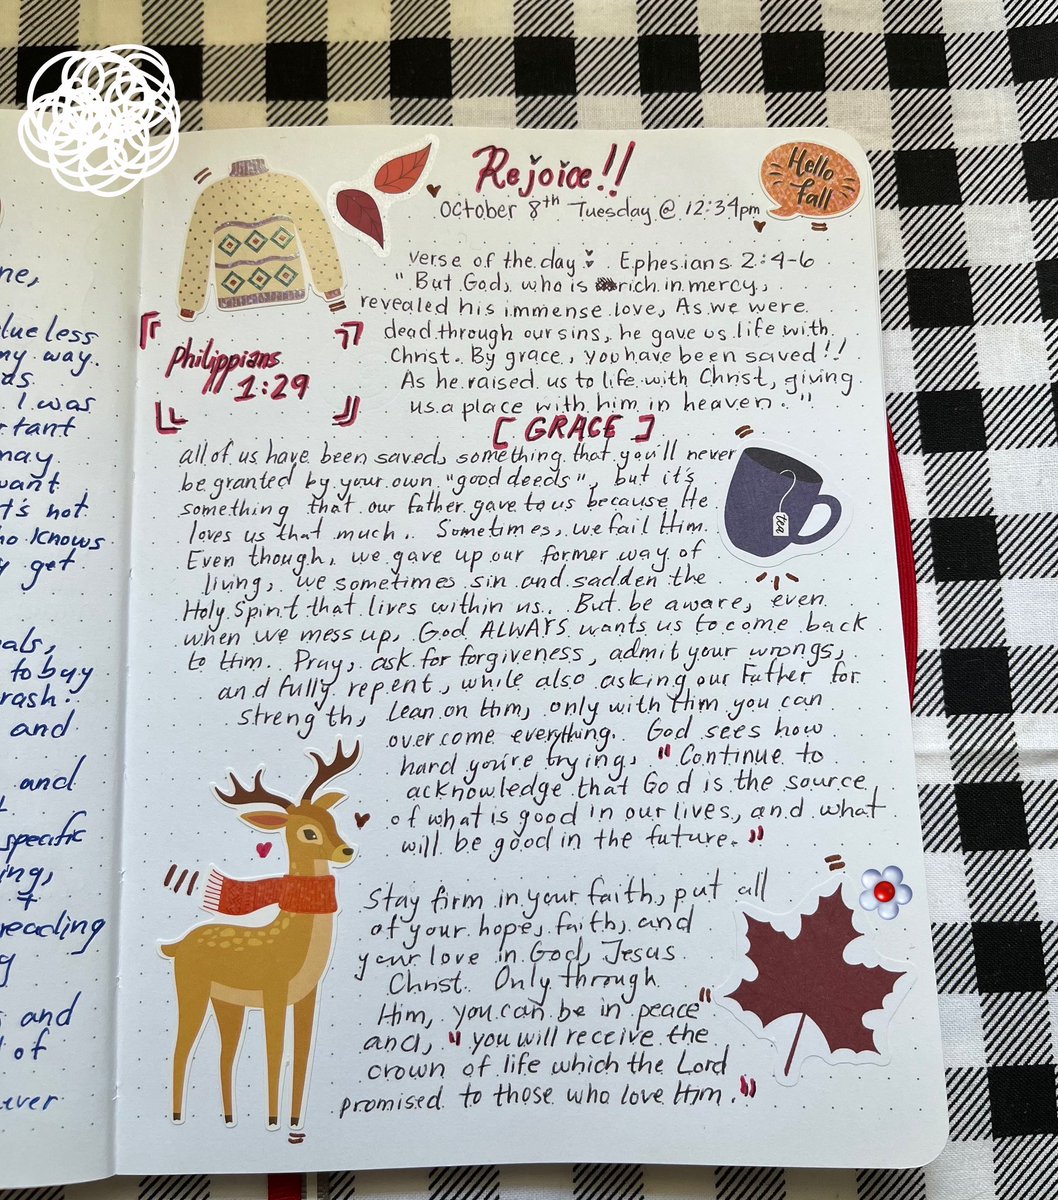 ne,
lue less
my way.
as
I was
rtant
may
want
t's not
ho knows
y get
als,
to buy
rash!
and
and
specific
ing,
+
reading
g
s and
d of
uver
Rejoice!!
October 8th Tuesday @ 12:34pm
Hello
fall
verse of the day Ephesians 2:4-6
"But God, who is rich in mercy,
revealed his immense love, As we were
dead through our sins, he gave us life with
Christ. By grace, you have been saved!!
As he raised us to life with Christ, giving
us a place with him in heaven."
Philippians
1:29
[GRACE]
all of us have been saved, something that you'll never
be granted by your own "good deeds", but it's
something that our Father gave to us because He
loves us that much. Sometimes, we fail Him.
Even though, we gave up our former way of
living, we sometimes sin and sadden the
Holy Spirit that lives within us. But be aware, even
when we mess up, God ALWAYS wants us to come back
to Him. Pray, ask for forgiveness, admit your wrongs,
and fully repent, while also asking our Father for
strength, lean on Him, only with Him you can
overcome everything. God sees how
hard you're trying, "Continue to
acknowledge that God is the source
of what is good in our lives, and what
will be good in the future."
tea
Stay firm in your faith, put all
of your hope, faith, and
your love in God, Jesus
Christ. Only through
Him, you can be in peace"
and, "you will receive the
crown of life which the Lord
promised to those who love Him."